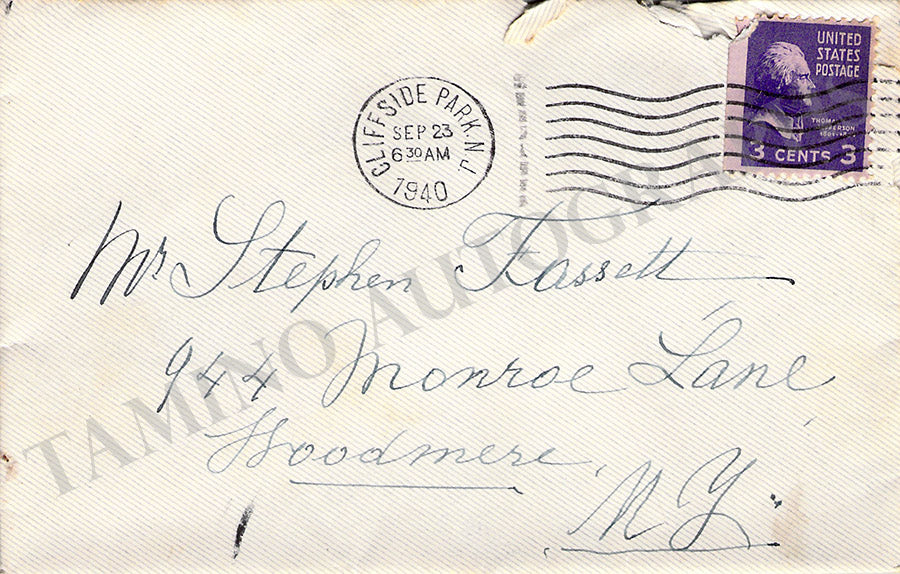 UNITED
STATES
POSTAGE
THOMAS
JEFFERSON
3 CENTS 3
CLIFFSIDE PARK. N. J.
SEP 23
6 30 AM
1940
Mr Stephen Fassett
944 Monroe Lane
Woodmere,
N Y.
TAMINO AUTOGRAPHS